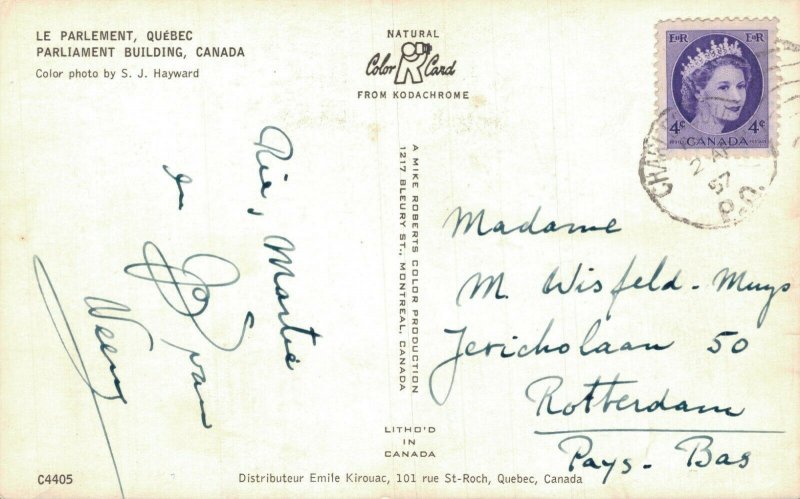 LE PARLEMENT, QUéBEC
PARLIAMENT BUILDING, CANADA
Color photo by S. J. Hayward
NATURAL
Color Card
FROM KODACHROME
E II R E II R
4c 4c
CANADA
2 AP
57
P.Q.
A MIKE ROBERTS COLOR PRODUCTION
1217 BLEURY ST., MONTREAL, CANADA
Ria, Martie
en
van
Madame
M. Wisfeld - Muys
Jericholaan 50
Rotterdam
Pays-Bas
LITHO'D
IN
CANADA
C4405
Distributeur Emile Kirouac, 101 rue St-Roch, Quebec, Canada